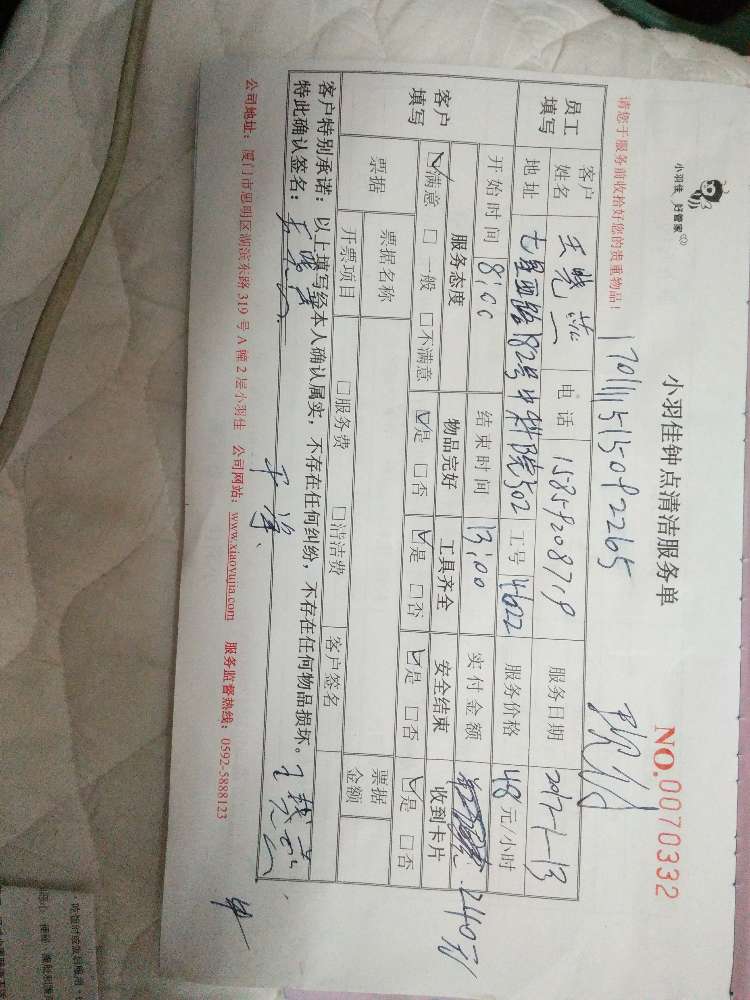 小羽佳 好管家
小羽佳钟点清洁服务单
NO.0070332
请您于服务前收拾好您的贵重物品！
1701111515092265
员工填写 客户姓名 王晓 电话 15859208719 服务日期 2017-1-13
地址 七星西路182号中科院502 工号 14622 服务价格 48 元/小时
开始时间 8:00 结束时间 13:00 实付金额 240元
客户填写 服务态度 物品完好 工具齐全 安全结束 收到卡片
☑满意 □一般 □不满意 ☑是 □否 ☑是 □否 ☑是 □否 ☑是 □否
票据 票据名称 客户签名 票据金额
开票项目 □服务费 □清洁费
客户特别承诺：以上填写经本人确认属实，不存在任何纠纷，不存在任何物品损坏。
特此确认签名：
公司地址：厦门市思明区湖滨东路 319 号 A 幢 2 层小羽佳 公司网站：www.xiaoyujia.com 服务监督热线：0592-5888123